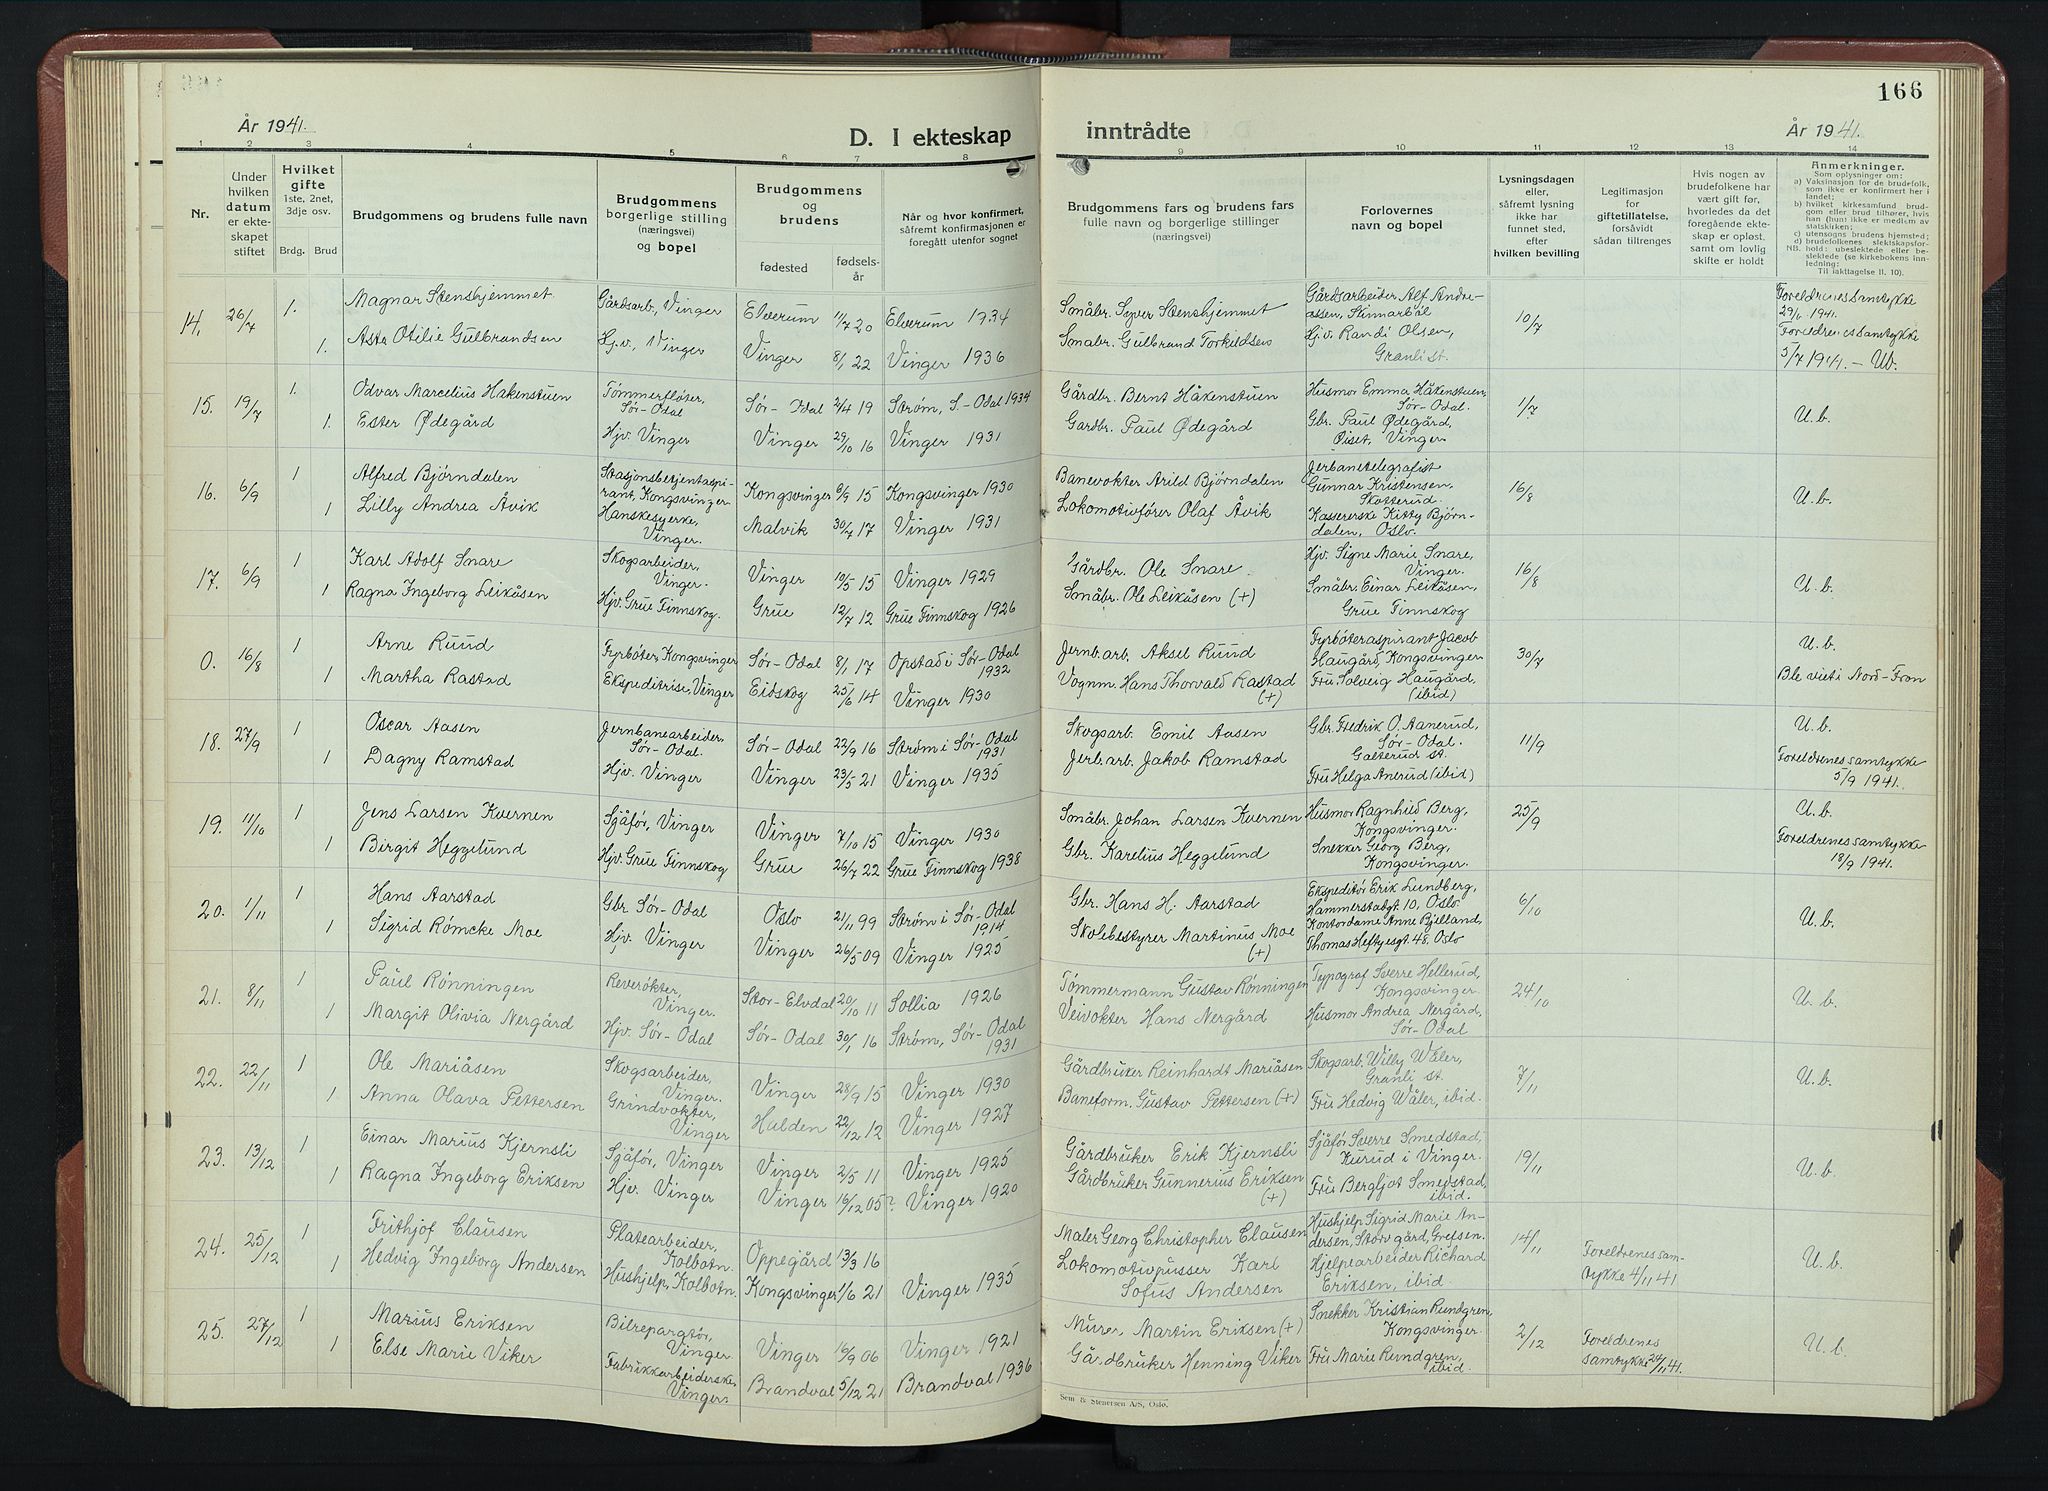 166
År 1941.
D. I ekteskap inntrådte
År 1941.
1 2 3 4 5 6 7 8 9 10 11 12 13 14
Nr.
Under hvilken datum er ekteskapet stiftet
Hvilket gifte 1ste, 2net, 3dje osv.
Brdg. Brud
Brudgommens og brudens fulle navn
Brudgommens borgerlige stilling (næringsvei) og bopel
Brudgommens og brudens
fødested
fødselsår
Når og hvor konfirmert, såfremt konfirmasjonen er foregått utenfor sognet
Brudgommens fars og brudens fars fulle navn og borgerlige stillinger (næringsvei)
Forlovernes navn og bopel
Lysningsdagen eller, såfremt lysning ikke har funnet sted, efter hvilken bevilling
Legitimasjon for giftetillatelse, forsåvidt sådan tiltrenges
Hvis nogen av brudefolkene har vært gift før, hvorledes da det foregående ekteskap er opløst, samt om lovlig skifte er holdt
Anmerkninger.
Som oplysninger om:
a) Vaksinasjon for de brudefolk, som ikke er konfirmert her i landet;
b) hvilket kirkesamfund brudgom eller brud tilhører, hvis han (hun) ikke er medlem av statskirken;
c) utensogns brudens hjemsted;
d) brudefolkenes slektskapsforhold: ubeslektede eller beslektede (se kirkebokens innledning:
NB.
Til iakttagelse II. 10).
14. 26/7 1. Magnar Stenshjemmet Gårdsarb, Vinger Elverum 11/7 20 Elverum 1934 Småbr. Syver Stenshjemmet Gårdsarbeider Alf Andreassen, Skinnarbøl 10/7 Foreldrenes samtykke 29/6 1941.
1. Asta Otilie Gulbrandsen Hj.v, Vinger Vinger 8/1 22 Vinger 1936 Småbr. Gulbrand Torkildsen Hj.v. Randi Olsen, Granli st. Foreldrenes samtykke 5/7 1941. - Ub.
15. 19/7 1. Odvar Marcelius Håkenstuen Tømmerfløter, Sør-Odal Sør-Odal 2/4 19 Strøm, S.-Odal 1934 Gårdbr. Bernt Håkenstuen Husmor Emma Håkenstuen Sør-Odal. 1/7 U.b.
1. Ester Ødegård Hjv. Vinger Vinger 29/10 16 Vinger 1931 Gårdbr. Paul Ødegård Gbr. Paul Ødegård, Øiset, Vinger
16. 6/9 1 Alfred Bjørndalen Stasjonsbetjentaspirant, Kongsvinger Kongsvinger 6/9 15 Kongsvinger 1930 Banevokter Arild Bjørndalen Jerbanetelegrafist Gunnar Kristensen, Skotterud. 16/8 U.b.
1 Lilly Andrea Åvik Hanskesyerke, Vinger. Malvik 30/7 17 Vinger 1931 Lokomotivfører Olaf Åvik Kassererske Kitty Bjørndalen, Oslo.
17. 6/9 1 Karl Adolf Snare Skogsarbeider, Vinger. Vinger 10/5 15 Vinger 1929 Gårdbr. Ole Snare Hjv. Signe Marie Snare, Vinger. 16/8 U.b.
1 Ragna Ingeborg Leikåsen Hjv. Grue Finnskog. Grue 12/7 12 Grue Finnskog 1926 Småbr. Ole Leikåsen (+) Småbr. Einar Leikåsen, Grue Finnskog
0. 16/8 1 Arne Ruud Fyrbøter, Kongsvinger Sør-Odal 8/1 17 Opstad i Sør-Odal 1932 Jernb.arb. Aksel Ruud Fyrbøteraspirant Jacob Haugård, Kongsvinger 30/7 U.b.
1 Martha Rastad Ekspeditrise, Vinger Eidskog 25/6 14 Vinger 1930 Vognm. Hans Thorvald Rastad (+) Fru Solveig Haugård, (ibid) Ble viet i Nord-Fron
18. 27/9 1 Oscar Aasen Jernbanearbeider, Sør-Odal. Sør-Odal 22/9 16 Strøm i Sør-Odal 1931 Skogsarb. Emil Aasen Gbr. Fredrik O. Aanerud, Sør-Odal. Galterud st. 11/9 U.b.
1 Dagny Ramstad Hjv. Vinger Vinger 23/5 21 Vinger 1935 Jerb.arb. Jakob Ramstad Fru Helga Anerud (ibid) Foreldrenes samtykke 5/9 1941.
19. 11/10 1 Jens Larsen Kvernen Sjåfør, Vinger Vinger 7/10 15 Vinger 1930 Småbr. Johan Larsen Kvernen Husmor Ragnhild Berg, Kongsvinger. 25/9 U.b.
1 Birgit Heggelund Hjv. Grue Finnskog Grue 26/7 22 Grue Finnskog 1938 Gbr. Karelius Heggelund Snekker Georg Berg, Kongsvinger. Foreldrenes samtykke 18/9 1941.
20. 1/11 1 Hans Aarstad Gbr. Sør-Odal Oslo 21/11 99 Strøm i Sør-Odal 1914 Gbr. Hans H. Aarstad Ekspeditør Erik Lundberg, Hammerstadgt 10, Oslo 6/10 U.b.
1 Sigrid Rømcke Moe Hjv. Vinger Vinger 26/5 09 Vinger 1925 Skolebestyrer Martinus Moe (+) Kontordame Anne Bjelland, Thomas Heftyesgt. 48, Oslo
21. 8/11 1 Paul Rønningen Reverøkter, Vinger. Stor-Elvdal 20/10 11 Sollia 1926 Tømmermann Gustav Rønningen Typograf Sverre Hellerud, Kongsvinger 24/10 U.b.
1 Margit Olivia Nergård Hjv. Sør-Odal Sør-Odal 30/1 16 Strøm, Sør-Odal 1931 Veivokter Hans Nergård Husmor Andrea Nergård, Sør-Odal
22. 22/11 1 Ole Mariåsen Skogsarbeider, Vinger. Vinger 28/9 15 Vinger 1930 Gårdbruker Reinhardt Mariåsen Skogsarb. Willy Wåler, Granli st. 7/11 U.b.
1 Anna Olava Pettersen Grindvokter, Vinger Halden 22/12 12 Vinger 1927 Baneform. Gustav Pettersen (+) Fru Hedvig Wåler, ibid.
23. 13/12 1 Einar Marius Kjernsli Sjåfør, Vinger Vinger 2/5 11 Vinger 1925 Gårdbruker Erik Kjernsli Sjåfør Sverre Smedstad, Kurud i Vinger. 19/11 U.b.
1 Ragna Ingeborg Eriksen Hjv. Vinger Vinger 16/12 05? Vinger 1920 Gårdbruker Gunnerius Eriksen (+) Fru Bergljot Smedstad, ibid.
24. 25/12 1 Frithjof Clausen Platearbeider, Kolbotn. Oppegård 13/3 16 Maler Georg Christopher Clausen Hushjelp Sigrid Marie Andersen, Storvgård, Grefsen. 14/11 Foreldrenes samtykke 4/11 41 U.b.
1 Hedvig Ingeborg Andersen Hushjelp, Kolbotn. Kongsvinger 1/6 21 Vinger 1935 Lokomotivpusser Karl Sofus Andersen Hjelpearbeider Richard Eriksen, ibid.
25. 27/12 1 Marius Eriksen Bilreparatør, Vinger Vinger 16/9 06 Vinger 1921 Murer Martin Eriksen (+) Snekker Kristian Rundgren, Kongsvinger 2/12 Foreldrenes samtykke 24/11 41. U.b.
1 Else Marie Viker Fabrikkarbeiderske Vinger. Brandval 5/12 21 Brandval 1936 Gårdbruker Henning Viker Fru Marie Rundgren, ibid.
Sem & Stenersen A/S, Oslo.